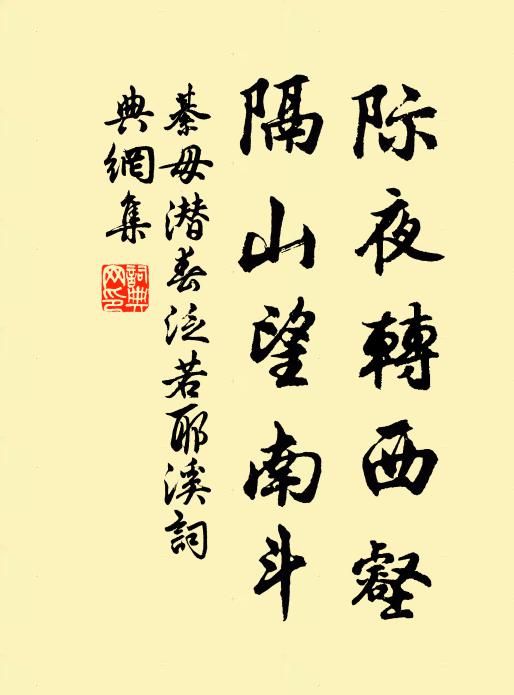 际夜轉西壑
隔山望南斗
綦毋潜春泛若耶溪詞
典網集
詞典网印